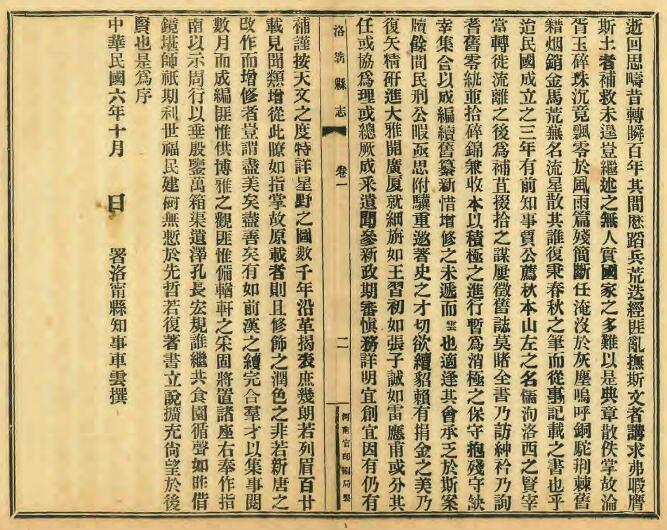 逝回思疇昔轉瞬百年其間歷蹈兵荒迭經匪亂撫斯文者講求弗暇膺
斯土者補救未遑豈繼述之無人實國家之多難以是典章散佚掌故淪
胥玉碎珠沉竟飄零於風雨篇殘簡斷任淹沒於灰塵嗚呼銅駝荆棘舊
籍烟銷金馬荒蕪名流星散其誰復秉春秋之筆而從事記載之書也乎
迨民國成立之三年有前知事賈公薦秋本山左之名儒洵洛西之賢宰
當轉徙流離之後為補苴掇拾之謀屢徵舊誌莫睹全書乃訪紳衿乃詢
耆舊零紙並拾碎錦兼收本以積極之進行暫為消極之保守抱殘守缺
幸集合以成編續舊纂新惜增修之未遞而雲也適逢其會承乏於斯案
牘餘間民刑公暇亟思附驥重邀著史之才切欲續貂賴有捐金之美乃
復矢精研進大雅開廣厦就細旃如王習初如張子誠如雷應甫或分其
任或協為理或總厥成釆遺聞參新政期審慎務詳明宜創宜因有仍有
洛寗縣志
卷一
二
河南官印刷局製
補謹按天文之度特詳星野之圖數千年沿革揭表庶幾朗若列眉百廿
載見聞類增從此瞭如指掌故原載者則且修飾之潤色之非若新唐之
改作而增修者豈謂盡美矣盡善矣有如前漢之續完合羣才以集事閱
數月而成編匪惟供博雅之觀匪惟備輶軒之采固將置諸座右奉作指
南以示周行以垂殷鑒萬箱渠遺澤孔長宏規誰繼共食園循聲如昨借
鏡堪師祇期利世福民建樹無慙於先哲若復著書立說擴充尙望於後
賢也是為序
中華民國六年十月　日　署洛甯縣知事車雲撰